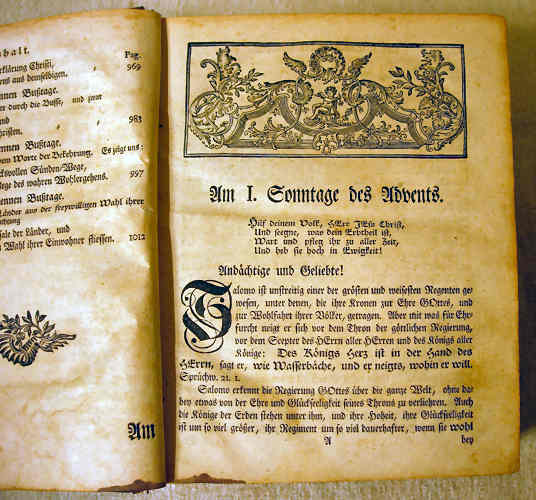 halt.
Pag.
erklärung Christi,
ens aus demselbigen. 969
ennen Bußtage.
er durch die Busse, und zwar
und
hristen. 983
ennen Bußtage.
dem Worte der Bekehrung. Es zeigt uns:
ckvollen Sünden/Wege,
Wege des wahren Wohlergehens. 997
ennen Bußtage.
Länder aus der freywilligen Wahl ihrer
ale der Länder, und
Wahl ihrer Einwohner fliessen. 1012
Am
Am I. Sonntage des Advents.
Hilf deinem Volk, HErr JEsu Christ,
Und segne, was dein Erbtheil ist,
Wart und pfleg ihr zu aller Zeit,
Und heb sie hoch in Ewigkeit!
Andächtige und Geliebte!
Salomo ist unstreitig einer der größten und weisesten Regenten ge-
wesen, unter denen, die ihre Kronen zur Ehre GOttes, und
zur Wohlfahrt ihrer Völker, getragen. Aber mit was für Ehr-
furcht neigt er sich vor dem Thron der göttlichen Regierung,
vor dem Scepter des HErrn aller HErren und des Königs aller
Könige: Des Königs Herz ist in der Hand des
HErrn, sagt er, wie Wasserbäche, und er neigts, wohin er will.
Sprüchw. 21. 1.
Salomo erkennt die Regierung GOttes über die ganze Welt, ohne da-
bey etwas von der Ehre und Glückseeligkeit seines Throns zu verliehren. Auch
die Könige der Erden stehen unter ihm, und ihre Hoheit, ihre Glückseeligkeit
ist um so viel größer, ihr Regiment um so viel dauerhafter, wenn sie wohl
A bey